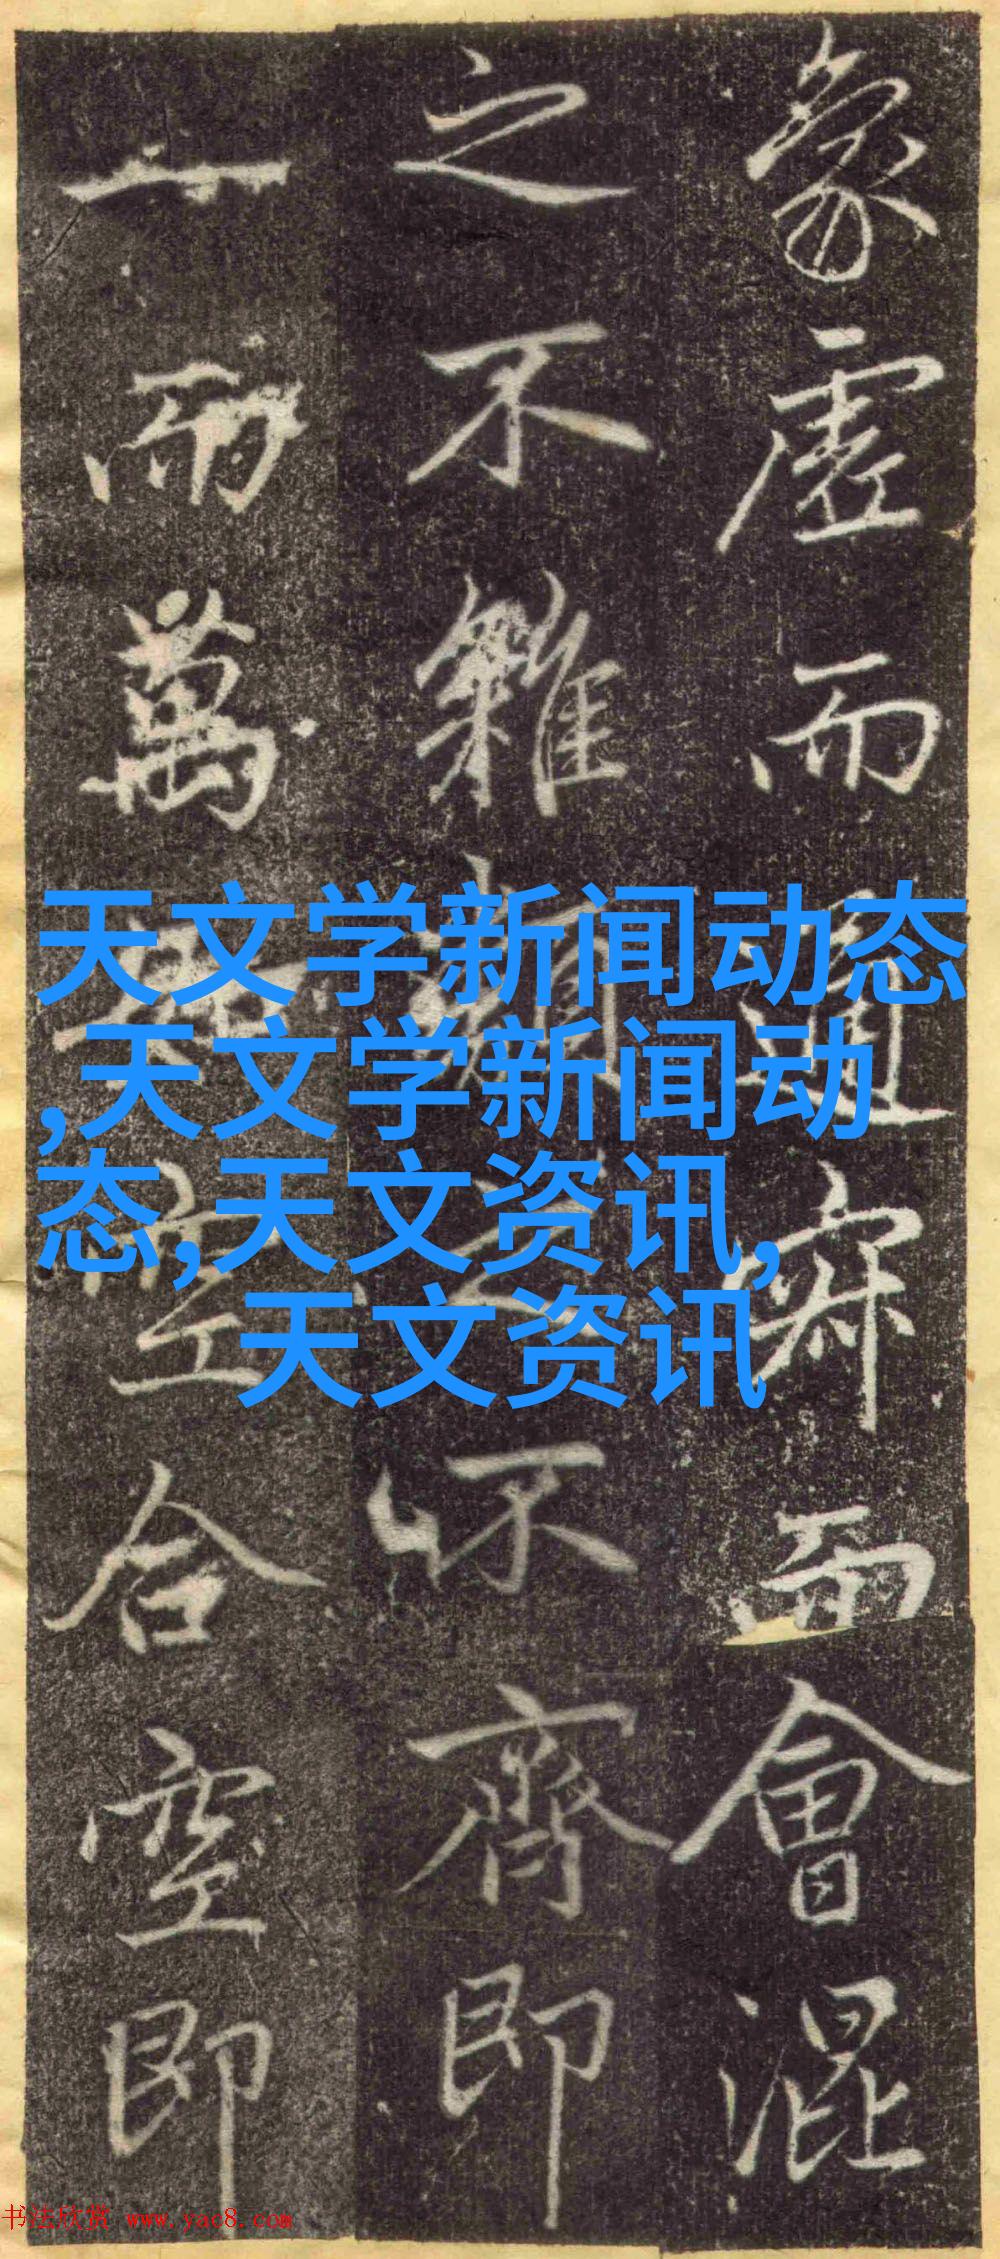 象虛而通寂而會混
之不雜不齊即
一而萬空合空即
天文学新闻动态
,天文学新闻动
态,天文资讯,
天文资讯
书法欣赏 www.yac8.com